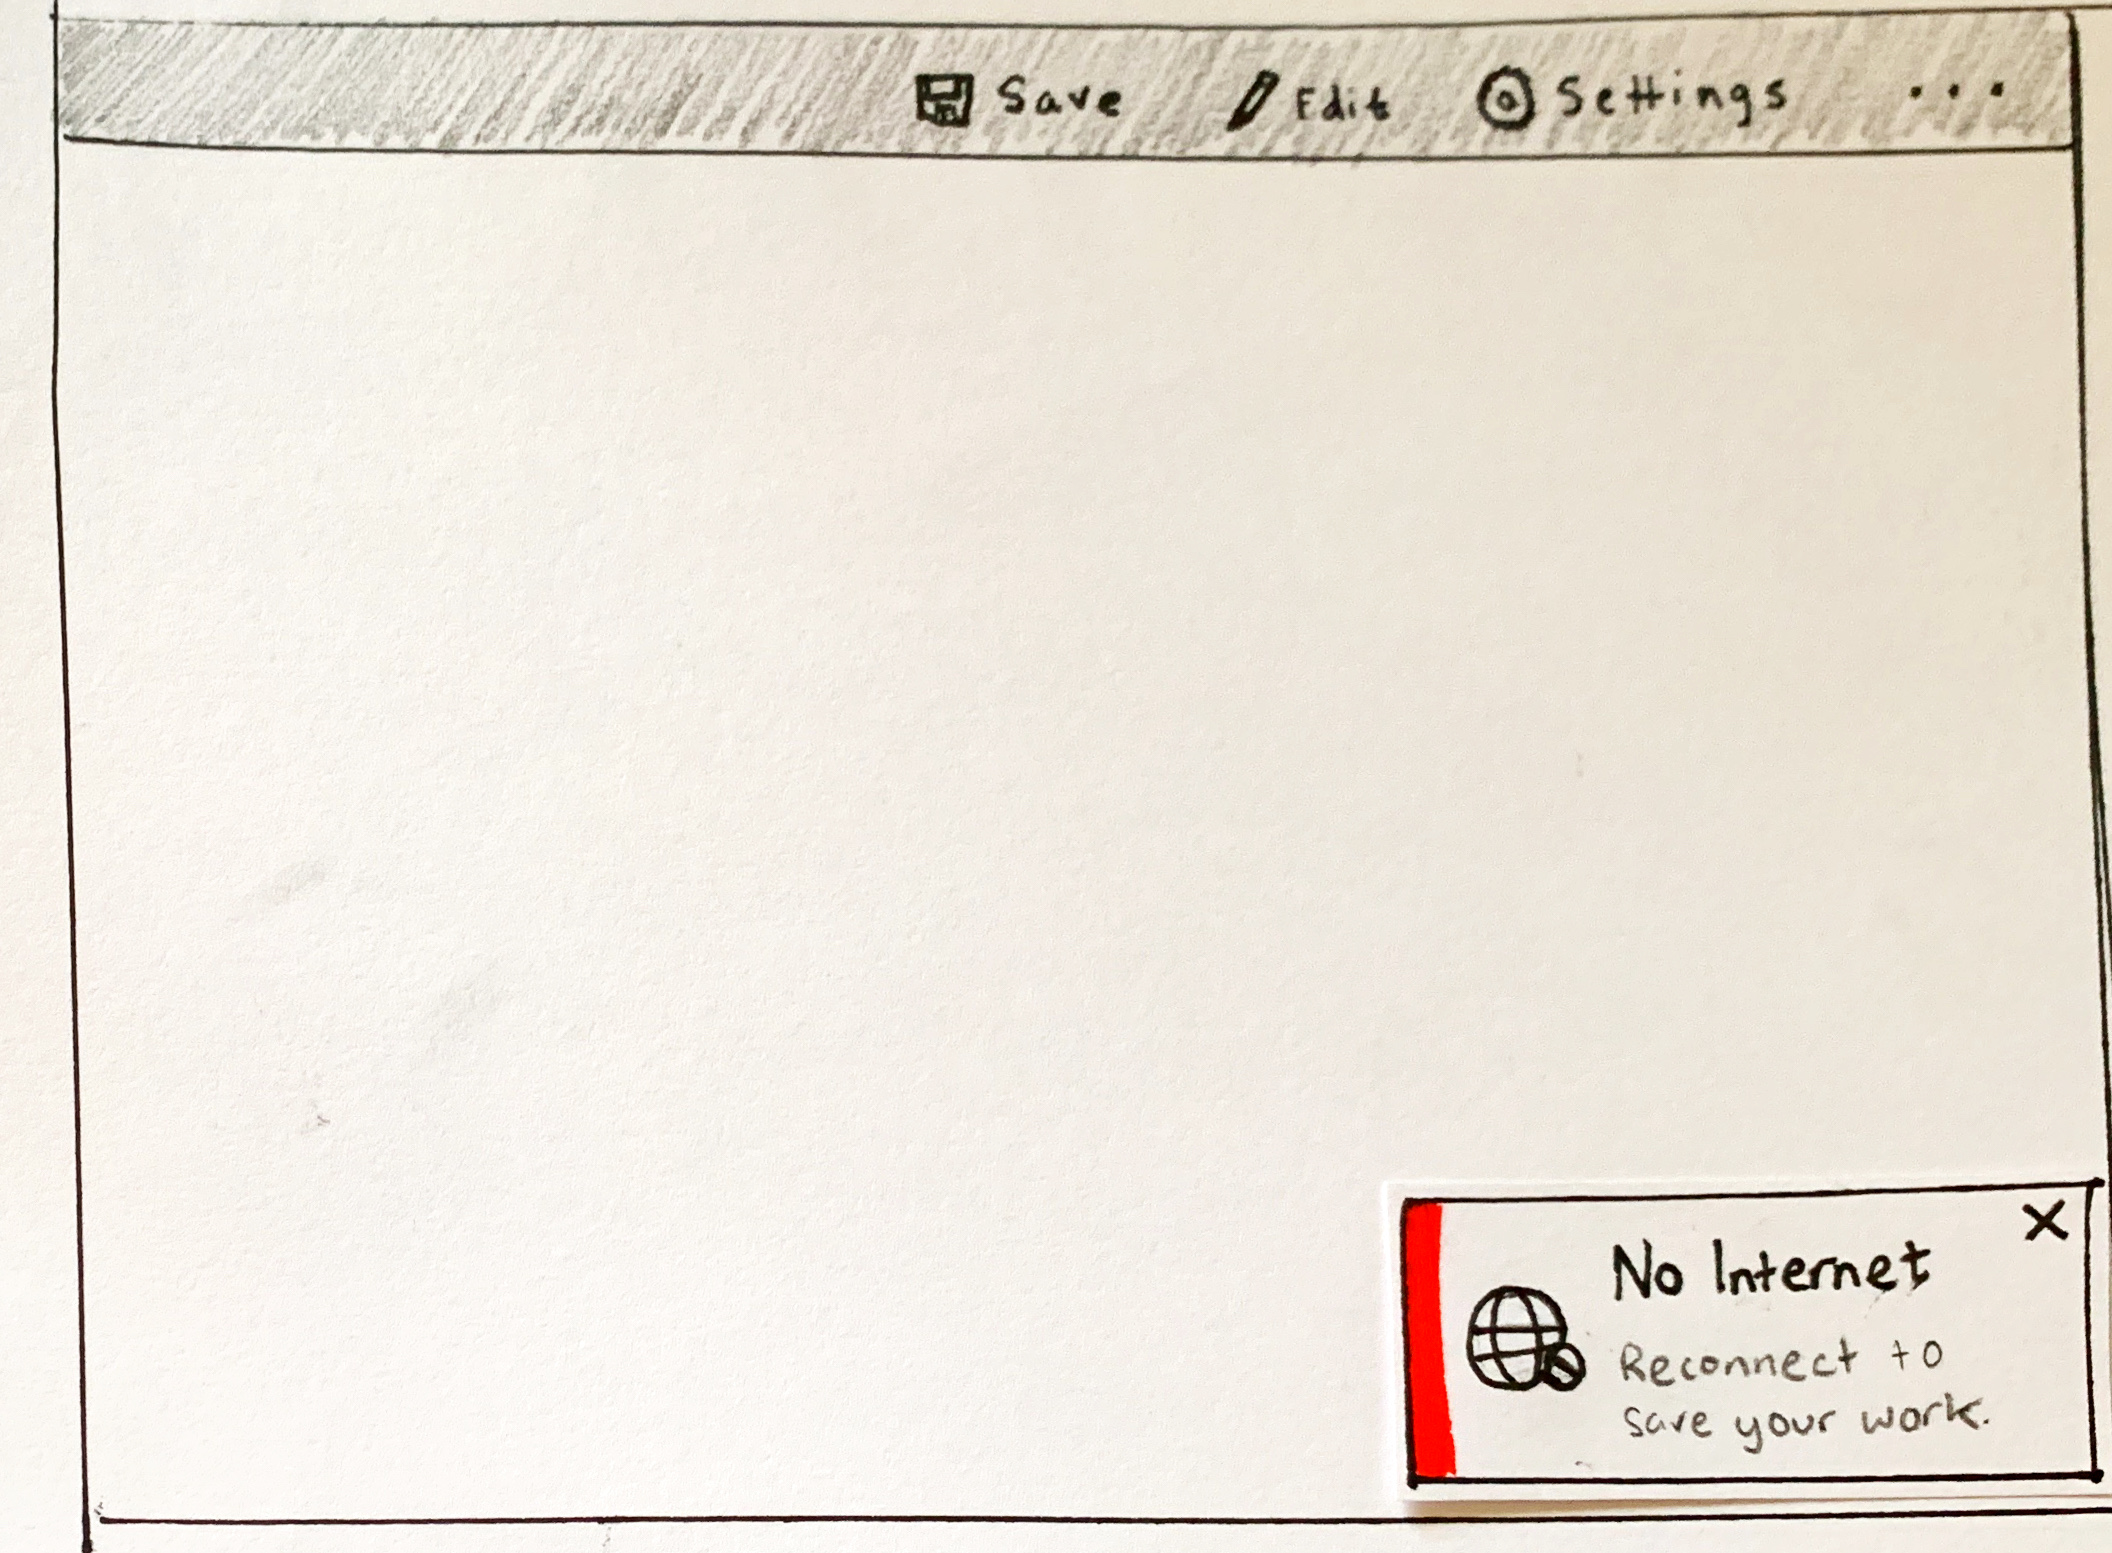 Save Edit Settings ...
X
No Internet
Reconnect to
save your work.